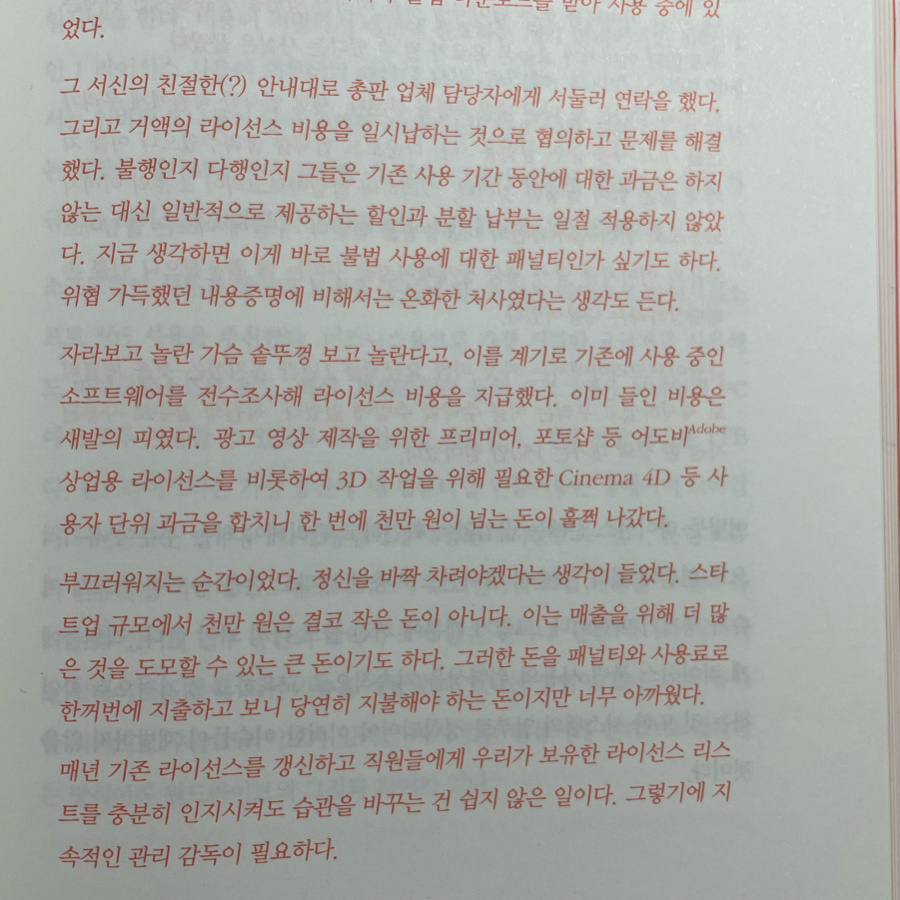 다운로드를 받아 사용 중에 있
었다.
그 서신의 친절한(?) 안내대로 총판 업체 담당자에게 서둘러 연락을 했다.
그리고 거액의 라이선스 비용을 일시납하는 것으로 협의하고 문제를 해결
했다. 불행인지 다행인지 그들은 기존 사용 기간 동안에 대한 과금은 하지
않는 대신 일반적으로 제공하는 할인과 분할 납부는 일절 적용하지 않았
다. 지금 생각하면 이게 바로 불법 사용에 대한 패널티인가 싶기도 하다.
위협 가득했던 내용증명에 비해서는 온화한 처사였다는 생각도 든다.
자라보고 놀란 가슴 솥뚜껑 보고 놀란다고, 이를 계기로 기존에 사용 중인
소프트웨어를 전수조사해 라이선스 비용을 지급했다. 이미 들인 비용은
새발의 피였다. 광고 영상 제작을 위한 프리미어, 포토샵 등 어도비Adobe
상업용 라이선스를 비롯하여 3D 작업을 위해 필요한 Cinema 4D 등 사
용자 단위 과금을 합치니 한 번에 천만 원이 넘는 돈이 훌쩍 나갔다.
부끄러워지는 순간이었다. 정신을 바짝 차려야겠다는 생각이 들었다. 스타
트업 규모에서 천만 원은 결코 작은 돈이 아니다. 이는 매출을 위해 더 많
은 것을 도모할 수 있는 큰 돈이기도 하다. 그러한 돈을 패널티와 사용료로
한꺼번에 지출하고 보니 당연히 지불해야 하는 돈이지만 너무 아까웠다.
매년 기존 라이선스를 갱신하고 직원들에게 우리가 보유한 라이선스 리스
트를 충분히 인지시켜도 습관을 바꾸는 건 쉽지 않은 일이다. 그렇기에 지
속적인 관리 감독이 필요하다.